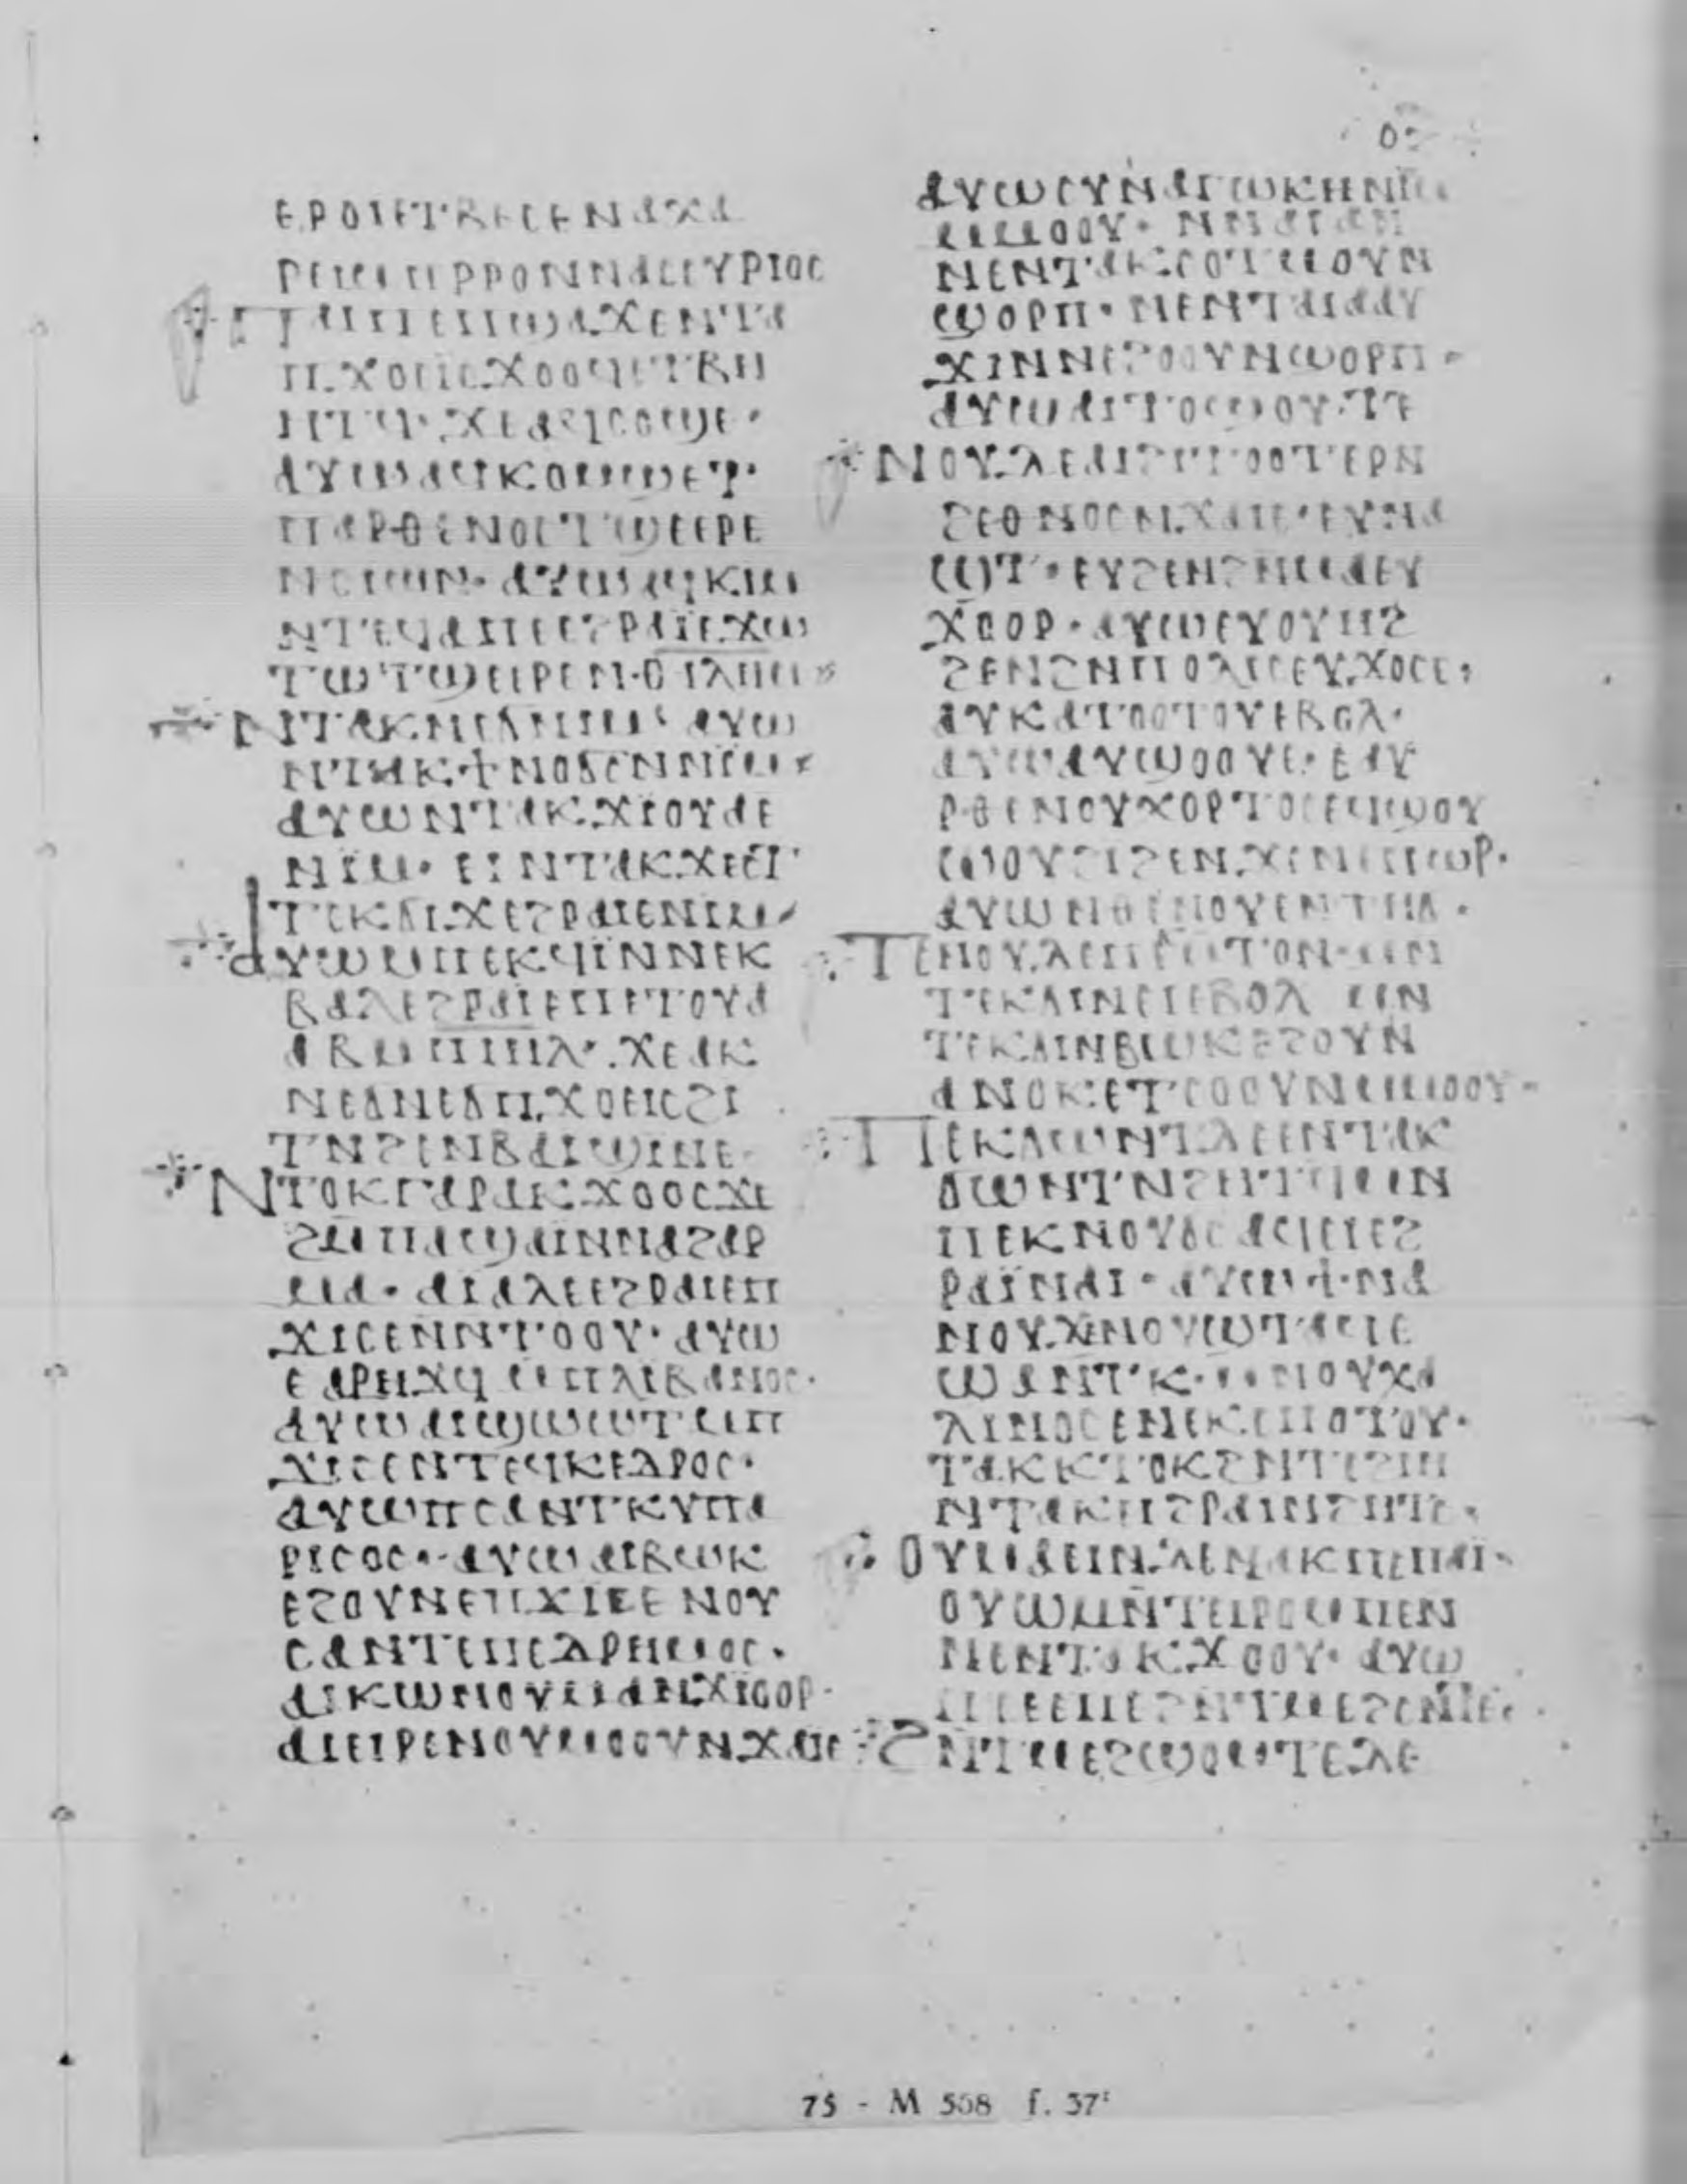 ⲉⲣⲟⲓⲉⲧⲃⲉⲥⲉⲛⲁⲭⲁ
ⲣⲉⲓⲙⲡⲣⲣⲟⲛⲛⲁⲥⲥⲩⲣⲓⲟⲥ
ⲡⲁⲓⲡⲉⲡϣⲁϫⲉⲛⲧⲁ
ⲡϫⲟⲉⲓⲥϫⲟⲟϥⲉⲧⲃⲏ
ⲏⲧϥ·ϫⲉⲁϥⲥⲟϣⲉ·
ⲁⲩⲱⲁϥⲕⲟⲙϣⲉⲧ·
ⲡⲁⲣⲑⲉⲛⲟⲥⲧϣⲉⲉⲣⲉ
ⲛⲥⲓⲱⲛ·ⲁⲩⲱⲁϥⲕⲓⲙ
ⲛⲧⲉϥⲁⲡⲉⲉϩⲣⲁⲓⲉϫⲱ
ⲧⲱⲧϣⲉⲉⲣⲉⲛⲑⲓⲗⲏⲙ
ⲛⲧⲁⲕⲛⲉϭⲛⲛⲓⲙ·ⲁⲩⲱ
ⲛⲧⲁⲕϯⲛⲟϭⲥⲛⲛⲓⲙ·
ⲁⲩⲱⲛⲧⲁⲕϫⲓⲟⲩⲁⲉ
ⲛⲓⲙ·ⲉⲓⲛⲧⲁⲕϫⲉⲥⲧ
ⲧⲉⲕϭⲓϫⲉϩⲣⲁⲓⲉⲛⲓⲙ·
ⲁⲩⲱⲙⲡⲉⲕϥⲓⲛⲛⲉⲕ
ⲃⲁⲗⲉϩⲣⲁⲓⲉⲡⲉⲧⲟⲩⲁ
ⲁⲃⲙⲡⲓⲏⲗ·ϫⲉⲁⲕ
ⲛⲉϭⲛⲉϭⲡϫⲟⲉⲓⲥϩⲓ
ⲧⲛϩⲉⲛⲃⲁⲓϣⲓⲛⲉ·
ⲛⲧⲟⲕⲅⲁⲣⲁⲕϫⲟⲟⲥϫⲉ
ϩⲙⲡⲁϣⲁⲓⲛⲛⲁϩⲁⲣ
ⲙⲁ·ⲁⲓⲁⲗⲉⲉϩⲣⲁⲓⲉⲡ
ϫⲓⲥⲉⲛⲛⲧⲟⲟⲩ·ⲁⲩⲱ
ⲉⲁⲣⲏϫϥⲙⲡⲗⲓⲃⲁⲛⲟⲥ·
ⲁⲩⲱⲁⲓϣⲱⲱⲧⲙⲡ
ϫⲓⲥⲉⲛⲧⲉϥⲕⲉⲇⲣⲟⲥ·
ⲁⲩⲱⲡⲥⲁⲛⲧⲕⲩⲡⲁ
ⲣⲓⲥⲟⲥ·ⲁⲩⲱⲁⲓⲃⲱⲕ
ⲉϩⲟⲩⲛⲉⲡϫⲓⲥⲉⲛⲟⲩ
ⲥⲁⲛⲧⲉⲡⲉⲇⲣⲏⲙⲟⲥ·
ⲁⲓⲕⲱⲛⲟⲩⲙⲁⲛϫⲓⲟⲟⲣ·
ⲁⲓⲉⲓⲣⲉⲛⲟⲩⲙⲟⲟⲩⲛϫⲁⲓⲉ
ⲁⲩⲱⲥⲩⲛⲁⲅⲱⲕⲏⲛⲓⲙ
ⲙⲙⲟⲟⲩ·ⲛⲛⲁⲓⲁⲛ
ⲛⲉⲛⲧⲁⲕⲥⲟⲧⲙⲟⲩⲛ
ϣⲟⲣⲡ·ⲛⲉⲛⲧⲁⲓⲁⲁⲩ
ϫⲓⲛⲛⲉϩⲟⲟⲩⲛϣⲟⲣⲡ·
ⲁⲩⲱⲁⲓⲧⲟϣⲟⲩ·ⲧⲉ
ⲛⲟⲩⲇⲉⲁⲓϩⲓⲧⲟⲟⲧⲉⲣⲛ
ϩⲉⲑⲛⲟⲥⲛϫⲁⲓⲉ·ⲉⲩⲛⲁ
ϣⲧ·ⲉⲩϩⲉⲛϩⲛⲙⲁⲉⲩ
ϫⲟⲟⲣ·ⲁⲩⲱⲉⲩⲟⲩⲏϩ
ϩⲉⲛϩⲛⲡⲟⲗⲓⲥⲉⲩϫⲟⲥⲉ·
ⲁⲩⲕⲁⲧⲟⲟⲧⲟⲩⲉⲃⲟⲗ·
ⲁⲩⲱⲁⲩϣⲟⲟⲩⲉ·ⲉⲁⲩ
ⲣⲑⲉⲛⲟⲩⲭⲟⲣⲧⲟⲥⲉϥϣⲟⲩ
ϣⲟⲩϩⲓϩⲉⲛϫⲉⲛⲉⲡⲱⲣ·
ⲁⲩⲱⲛⲑⲉⲛⲟⲩⲉⲛⲧⲏⲗ·
ⲧⲉⲛⲟⲩⲇⲉⲡⲉⲕⲙⲧⲟⲛⲙⲛ
ⲧⲉⲕϭⲓⲛⲉⲓⲉⲃⲟⲗ ⲙⲛ
ⲧⲉⲕϭⲓⲛⲃⲱⲕⲉϩⲟⲩⲛ
ⲁⲛⲟⲕⲉⲧⲥⲟⲟⲩⲛⲙⲙⲟⲟⲩ·
ⲡⲉⲕϭⲱⲛⲧⲇⲉⲉⲛⲧⲁⲕ
ϭⲱⲛⲧⲛϩⲏⲧϥⲙⲛ
ⲡⲉⲕⲛⲟⲩϭⲥⲁϥⲉⲓⲉϩ
ⲣⲁⲓⲛⲁⲓ·ⲁⲩⲱϯⲛⲁ
ⲛⲟⲩϫⲛⲟⲩϣⲧⲁⲙⲉ
ϣⲁⲛⲧⲕ·ⲙⲛⲟⲩⲭⲁ
ⲗⲓⲛⲟⲥⲉⲛⲉⲕⲥⲡⲟⲧⲟⲩ·
ⲧⲁⲕⲕⲧⲟⲕϩⲛⲧⲉϩⲓⲏ
ⲛⲧⲁⲕⲉⲓϩⲣⲁⲓⲛϩⲏⲧⲥ·
ⲟⲩⲙⲁⲉⲓⲛⲇⲉⲛⲁⲕⲡⲉⲡⲁⲓ·
ⲟⲩⲱⲙⲛⲧⲉⲓⲣⲟⲙⲡⲉⲛ
ⲛⲉⲛⲧⲁⲕϫⲟⲟⲩ·ⲁⲩⲱ
ϩⲛⲧⲙⲉϩϣⲟⲙⲧⲉⲇⲉ
75 - M 568 f. 37ʳ